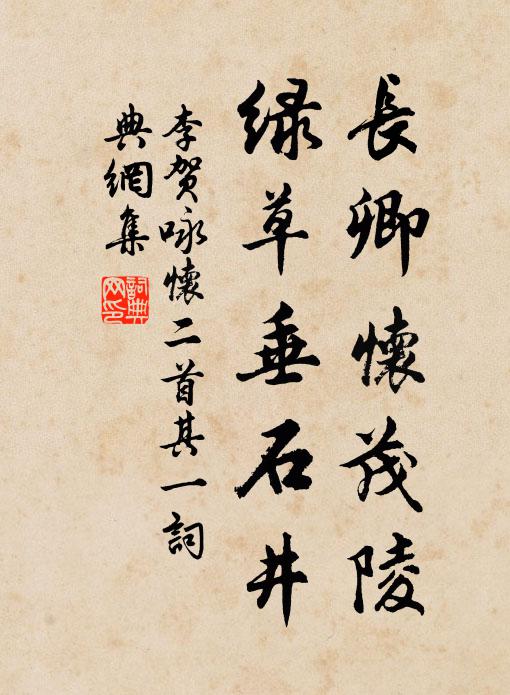 長卿懷茂陵
綠草垂石井
李贺咏懷二首其一詞
典網集
詞典
网印